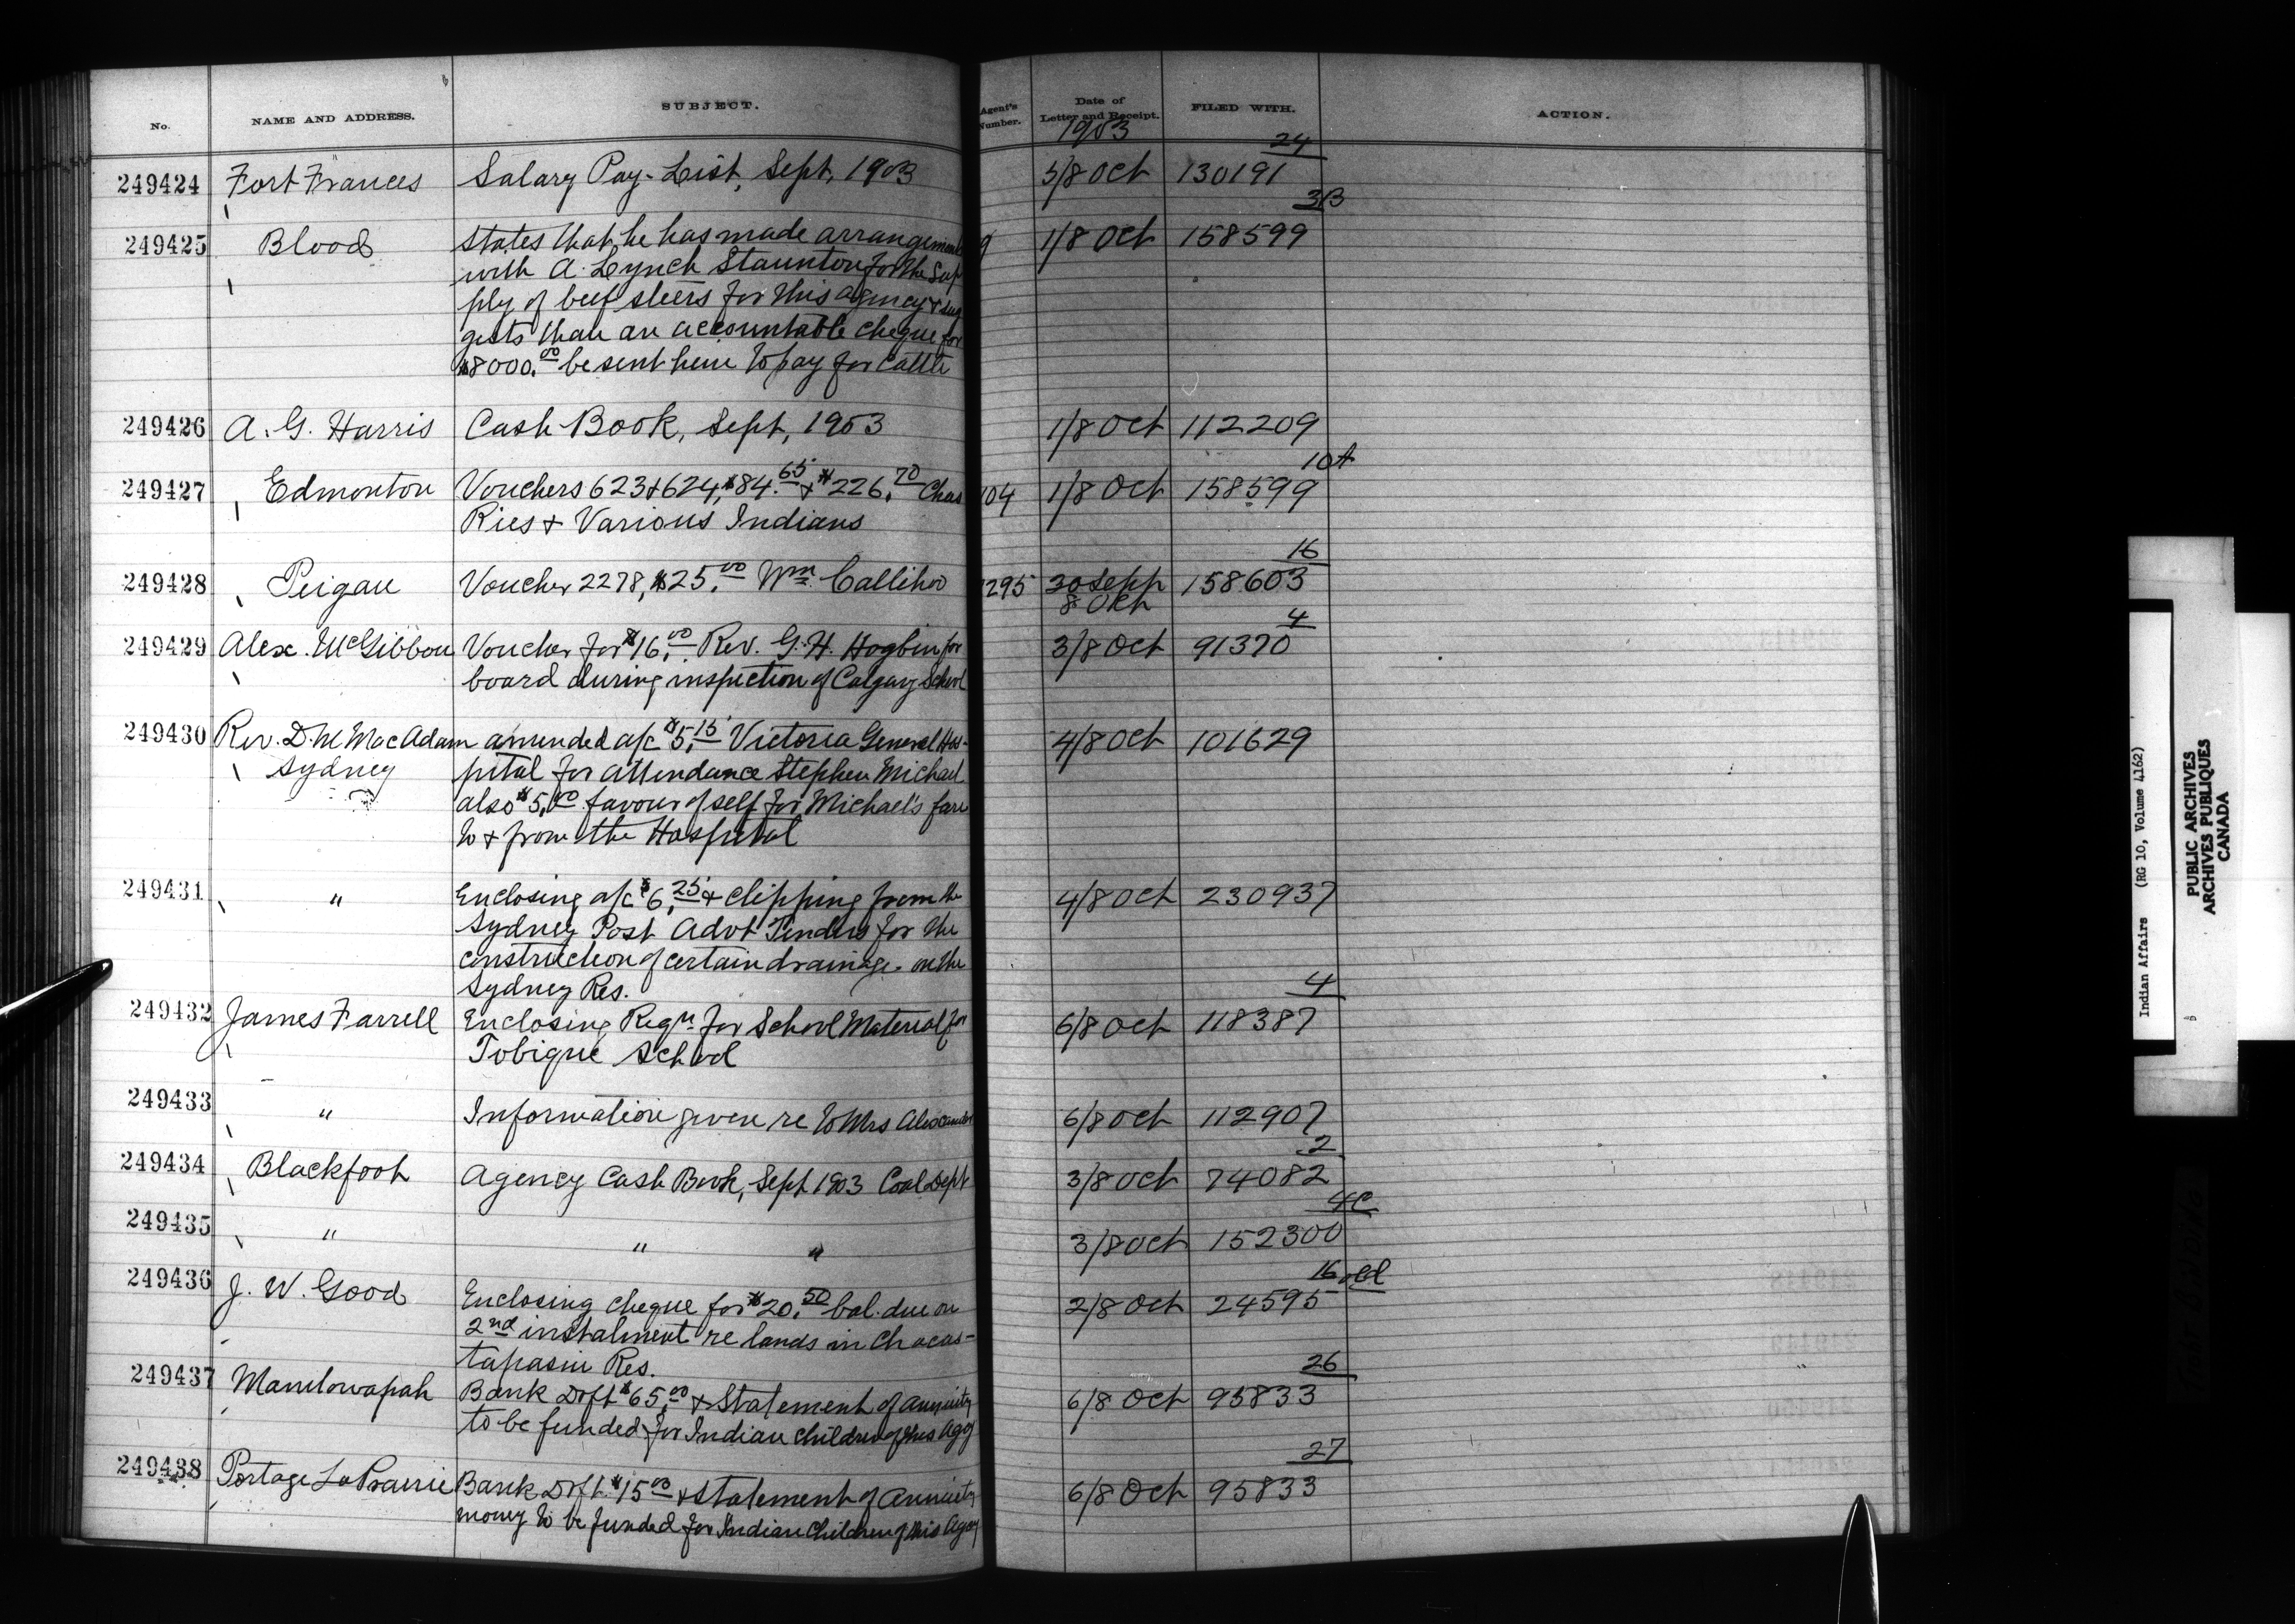 No. NAME AND ADDRESS. SUBJECT. Agent's Number. Date of Letter and Receipt. FILED WITH. ACTION.
1903
24
249424 Fort Frances Salary Pay-List, Sept, 1903 5/8 Oct 130191
3B
249425 Blood States that he has made arrangements 9 1/8 Oct 158599
with A. Lynch Staunton for the Sup
ply of beef steers for this agency & sug
gests that an accountable cheque for
$8000.00 be sent him to pay for cattle
249426 A. G. Harris Cash Book, Sept, 1903 1/8 Oct 112209
10A
249427 Edmonton Vouchers 623 & 624, $84.65 & $226.70 Chas 104 1/8 Oct 158599
Ries & Various Indians
16
249428 Peigan Voucher 2278, $25.00 Wm. Callihoo 1295 30 Sept 158603
8 Oct
4
249429 Alex. McGibbon Voucher for $16.00 Rev. G. H. Hogbin for 3/8 Oct 91370
board during inspection of Calgary School
249430 Rev. D. M MacAdam amended a/c $5.15 Victoria General Hos- 4/8 Oct 101629
Sydney pital for attendance Stephen Michael
also $5.00 favour of self for Michael's fare
to & from the Hospital
249431 " Enclosing a/c $6.25 & clipping from the 4/8 Oct 230937
Sydney Post Advt Tenders for the
construction of certain drainage on the
Sydney Res.
4
249432 James Farrell Enclosing Reqn. for School Material for 6/8 Oct 118387
Tobique School
249433 " Information given re to Mrs Alexander 6/8 Oct 112907
2
249434 Blackfoot Agency Cash Book, Sept 1903 Coal Dept 3/8 Oct 74082
4C
249435 " " " 3/8 Oct 152300
16 old
249436 J. W. Good Enclosing cheque for $20.50 bal. due on 2/8 Oct 24595
2nd instalment re lands in Chacas-
tapasin Res.
26
249437 Manitowapah Bank Dft $65.00 & Statement of annuity 6/8 Oct 95833
to be funded for Indian children of this Agcy
27
249438 Portage La Prairie Bank Dft. $15.00 & statement of Annuity 6/8 Oct 95833
money to be funded for Indian Children of this Agcy
Indian Affairs (RG 10, Volume 4162)
PUBLIC ARCHIVES
ARCHIVES PUBLIQUES
CANADA